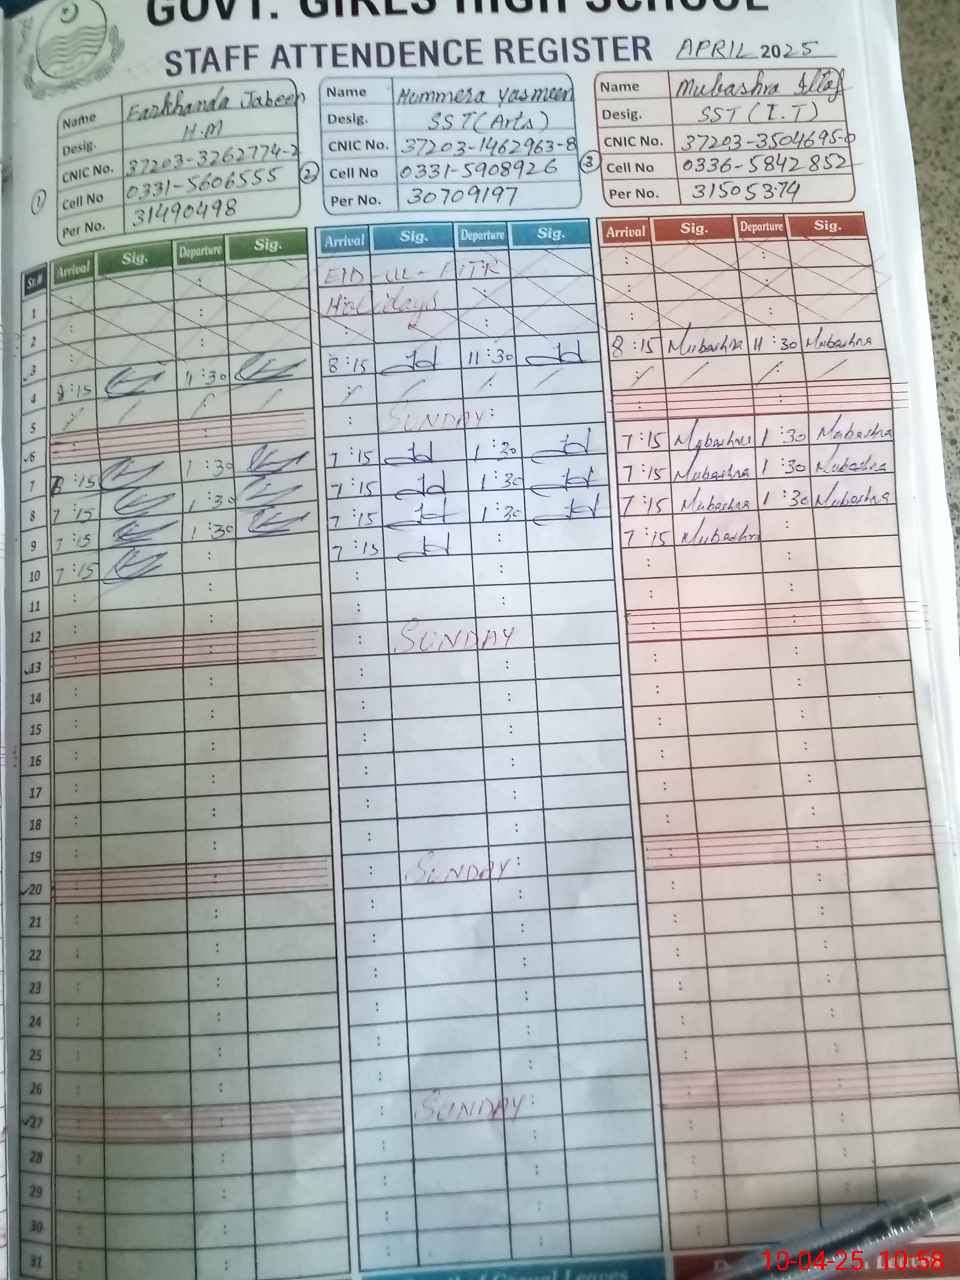 GOVT. GIRLS HIGH SCHOOL
STAFF ATTENDENCE REGISTER APRIL 2025
Name Farkhanda Jabeen
Desig. H.M
CNIC No. 37203-3262774-2
Cell No 0331-5606555
Per No. 31490498
1
Name Hummera Yasmeen
Desig. SST (Arts)
CNIC No. 37203-1462963-8
Cell No 0331-5908926
Per No. 30709197
2
Name Mubashra Iltaf
Desig. SST (I.T)
CNIC No. 37203-3504695-0
Cell No 0336-5842852
Per No. 31505374
3
Sr.# Arrival Sig. Departure Sig. Arrival Sig. Departure Sig. Arrival Sig. Departure Sig.
EID-UL-FITR
1 Holidays
2
3 8:15 11:30 8:15 11:30 8:15 Mubashra 11:30 Mubashra
4
5 SUNDAY
6 7:15 1:30 7:15 Mubashra 1:30 Mubashra
7 :15 1:30 7:15 1:30 7:15 Mubashra 1:30 Mubashra
8 7:15 1:30 7:15 1:30 7:15 Mubashra 1:30 Mubashra
9 7:15 1:30 7:15 7:15 Mubashra
10 7:15
11
12 SUNDAY
13
14
15
16
17
18
19 SUNDAY
20
21
22
23
24
25
26 SUNDAY
27
28
29
30
31
10-04-25 10:58